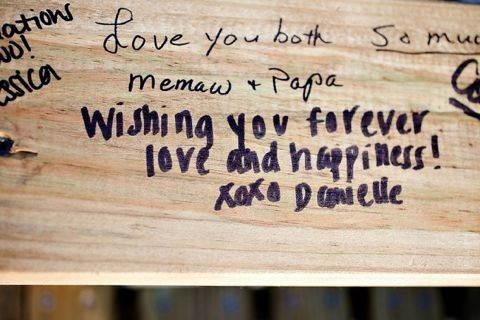 Love you both So muc
Memaw + Papa
Wishing you forever
love and happiness!
xoxo Danielle
ations
wo!
essica